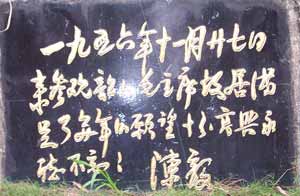 一九五六年十一月廿七日
来参观韶山毛主席故居满
足了多年的愿望十分高興永
誌不忘！ 陳毅